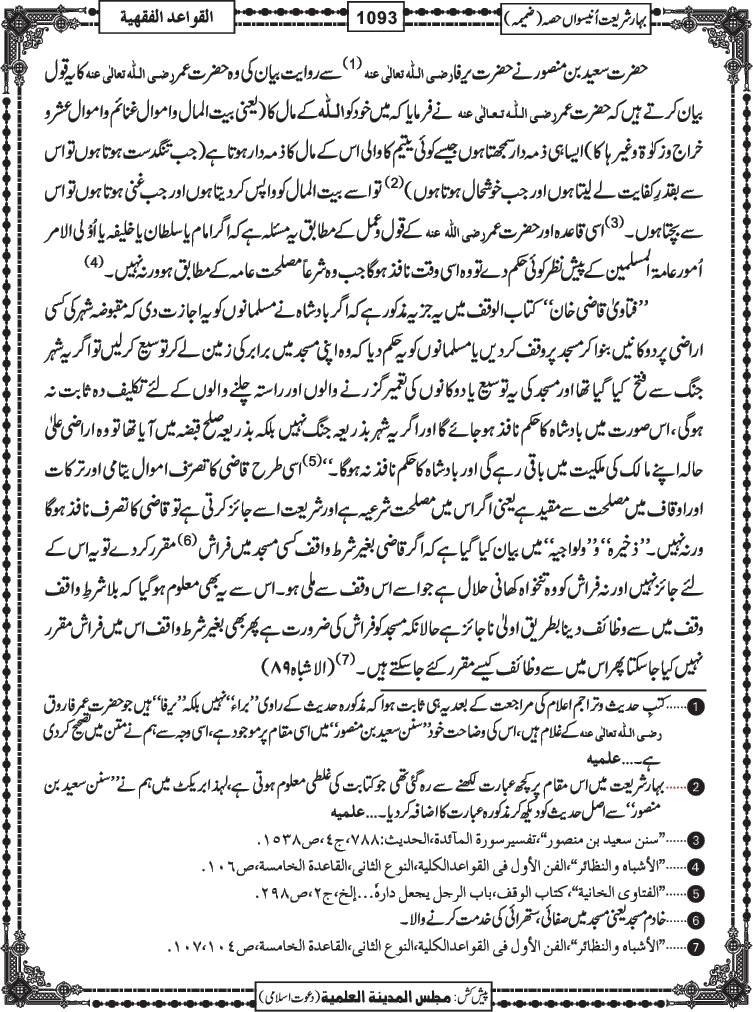 بہارِ شریعت اُنیسواں حصہ (ضمیمہ)
1093
القواعد الفقهية
حضرت سعید بن منصور نے حضرت یرفا رضی اللہ تعالٰی عنہ (1) سے روایت بیان کی وہ حضرت عمر رضی اللہ تعالٰی عنہ کا یہ قول
بیان کرتے ہیں کہ حضرت عمر رضی اللہ تعالٰی عنہ نے فرمایا کہ میں خود کو اللہ کے مال کا (یعنی بیت المال و اموال غنائم و اموال عشر و
خراج و زکوٰۃ وغیرہا کا) ایسا ہی ذمہ دار سمجھتا ہوں جیسے کوئی یتیم کا والی اس کے مال کا ذمہ دار ہوتا ہے (جب تنگدست ہوتا ہوں تو اس
سے بقدرِ کفایت لے لیتا ہوں اور جب خوشحال ہوتا ہوں) (2) تو اسے بیت المال کو واپس کر دیتا ہوں اور جب غنی ہوتا ہوں تو اس
سے بچتا ہوں۔ (3) اسی قاعدہ اور حضرت عمر رضی اللہ عنہ کے قول و عمل کے مطابق یہ مسئلہ ہے کہ اگر امام یا سلطان یا خلیفہ یا اُوْلی الامر
اُمور عامۃ المسلمین کے پیش نظر کوئی حکم دے تو وہ اسی وقت نافذ ہوگا جب وہ شرعاً مصلحت عامہ کے مطابق ہو ورنہ نہیں۔ (4)
’’فتاویٰ قاضی خان‘‘ کتاب الوقف میں یہ جزیہ مذکور ہے کہ اگر بادشاہ نے مسلمانوں کو یہ اجازت دی کہ مقبوضہ شہر کی کسی
اراضی پر دوکانیں بنوا کر مسجد پر وقف کردیں یا مسلمانوں کو یہ حکم دیا کہ وہ اپنی مسجد میں برابر کی زمین لے کر توسیع کر لیں تو اگر یہ شہر
جنگ سے فتح کیا گیا تھا اور مسجد کی یہ توسیع یا دوکانوں کی تعمیر گزرنے والوں اور راستہ چلنے والوں کے لئے تکلیف دہ ثابت نہ
ہوگی، اس صورت میں بادشاہ کا حکم نافذ ہو جائے گا اور اگر یہ شہر بذریعہ جنگ نہیں بلکہ بذریعہ صلح قبضہ میں آیا تھا تو وہ اراضی علیٰ
حالہ اپنے مالک کی ملکیت میں باقی رہے گی اور بادشاہ کا حکم نافذ نہ ہوگا۔‘‘ (5) اسی طرح قاضی کا تصرّف اموال یتامیٰ اور ترکات
اور اوقاف میں مصلحت سے مقید ہے یعنی اگر اس میں مصلحت شرعیہ ہے اور شریعت اسے جائز کرتی ہے تو قاضی کا تصرف نافذ ہوگا
ورنہ نہیں۔ ’’ذخیرہ‘‘ و ’’ولوالجیہ‘‘ میں بیان کیا گیا ہے کہ اگر قاضی بغیر شرط واقف کسی مسجد میں فراش (6) مقرر کر دے تو یہ اس کے
لئے جائز نہیں اور نہ فراش کو وہ تنخواہ کھانی حلال ہے جو اسے اس وقف سے ملی ہو۔ اس سے یہ بھی معلوم ہوگیا کہ بلا شرطِ واقف
وقف میں سے وظائف دینا بطریق اولیٰ ناجائز ہے حالانکہ مسجد کو فراش کی ضرورت ہے پھر بھی بغیر شرط واقف اس میں فراش مقرر
نہیں کیا جاسکتا پھر اس میں سے وظائف کیسے مقرر کئے جاسکتے ہیں۔ (7) (الاشباہ ۸۹)
1 ......کتبِ حدیث و تراجم اعلام کی مراجعت کے بعد یہی ثابت ہوا کہ مذکورہ حدیث کے راوی ’’براء‘‘ نہیں بلکہ ’’یرفا‘‘ ہیں جو حضرت عمر فاروق
رضی اللہ تعالٰی عنہ کے غلام ہیں، اس کی وضاحت خود ’’سنن سعید بن منصور‘‘ میں اسی مقام پر موجود ہے، اسی وجہ سے ہم نے متن میں تصحیح کر دی
ہے۔... علمیہ
2 ......بہارِ شریعت میں اس مقام پر کچھ عبارت لکھنے سے رہ گئی تھی جو کتابت کی غلطی معلوم ہوتی ہے، لہذا بریکٹ میں ہم نے ’’سنن سعید بن
منصور‘‘ سے اصل حدیث کو دیکھ کر مذکورہ عبارت کا اضافہ کر دیا۔... علمیہ
3 ......"سنن سعيد بن منصور"،تفسير سورة المآئدة،الحديث:٧٨٨،ج٤،ص١٥٣٨.
4 ......"الأشباه والنظائر"،الفن الأول في القواعد الكلية،النوع الثاني،القاعدة الخامسة،ص١٠٦.
5 ......"الفتاوى الخانية"، كتاب الوقف،باب الرجل يجعل دارهٗ...إلخ،ج٢،ص٢٩٨.
6 ......خادم مسجد یعنی مسجد میں صفائی، ستھرائی کی خدمت کرنے والا۔
7 ......"الأشباه والنظائر"،الفن الأول في القواعد الكلية،النوع الثاني،القاعدة الخامسة،ص١٠٧،١٠٤.
پیش کش: مجلس المدینة العلمية (دعوتِ اسلامی)